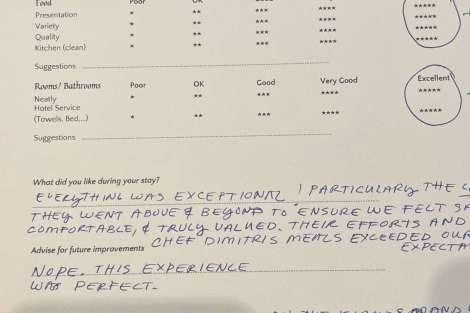 Food Poor OK
Presentation * ** *** **** *****
Variety * ** *** **** *****
Quality * ** *** **** *****
Kitchen (clean) * ** *** **** *****
Suggestions
Rooms / Bathrooms Poor OK Good Very Good Excellent
Neatly * ** *** **** *****
Hotel Service
(Towels, Bed...) * ** *** **** *****
Suggestions
What did you like during your stay?
EVERYTHING WAS EXCEPTIONAL, PARTICULARLY THE
THEY WENT ABOVE & BEYOND TO ENSURE WE FELT
COMFORTABLE, & TRULY VALUED. THEIR EFFORTS AND
CHEF DIMITRIS MEALS EXCEEDED OUR
EXPECTA
Advise for future improvements
NOPE. THIS EXPERIENCE
WAS PERFECT.